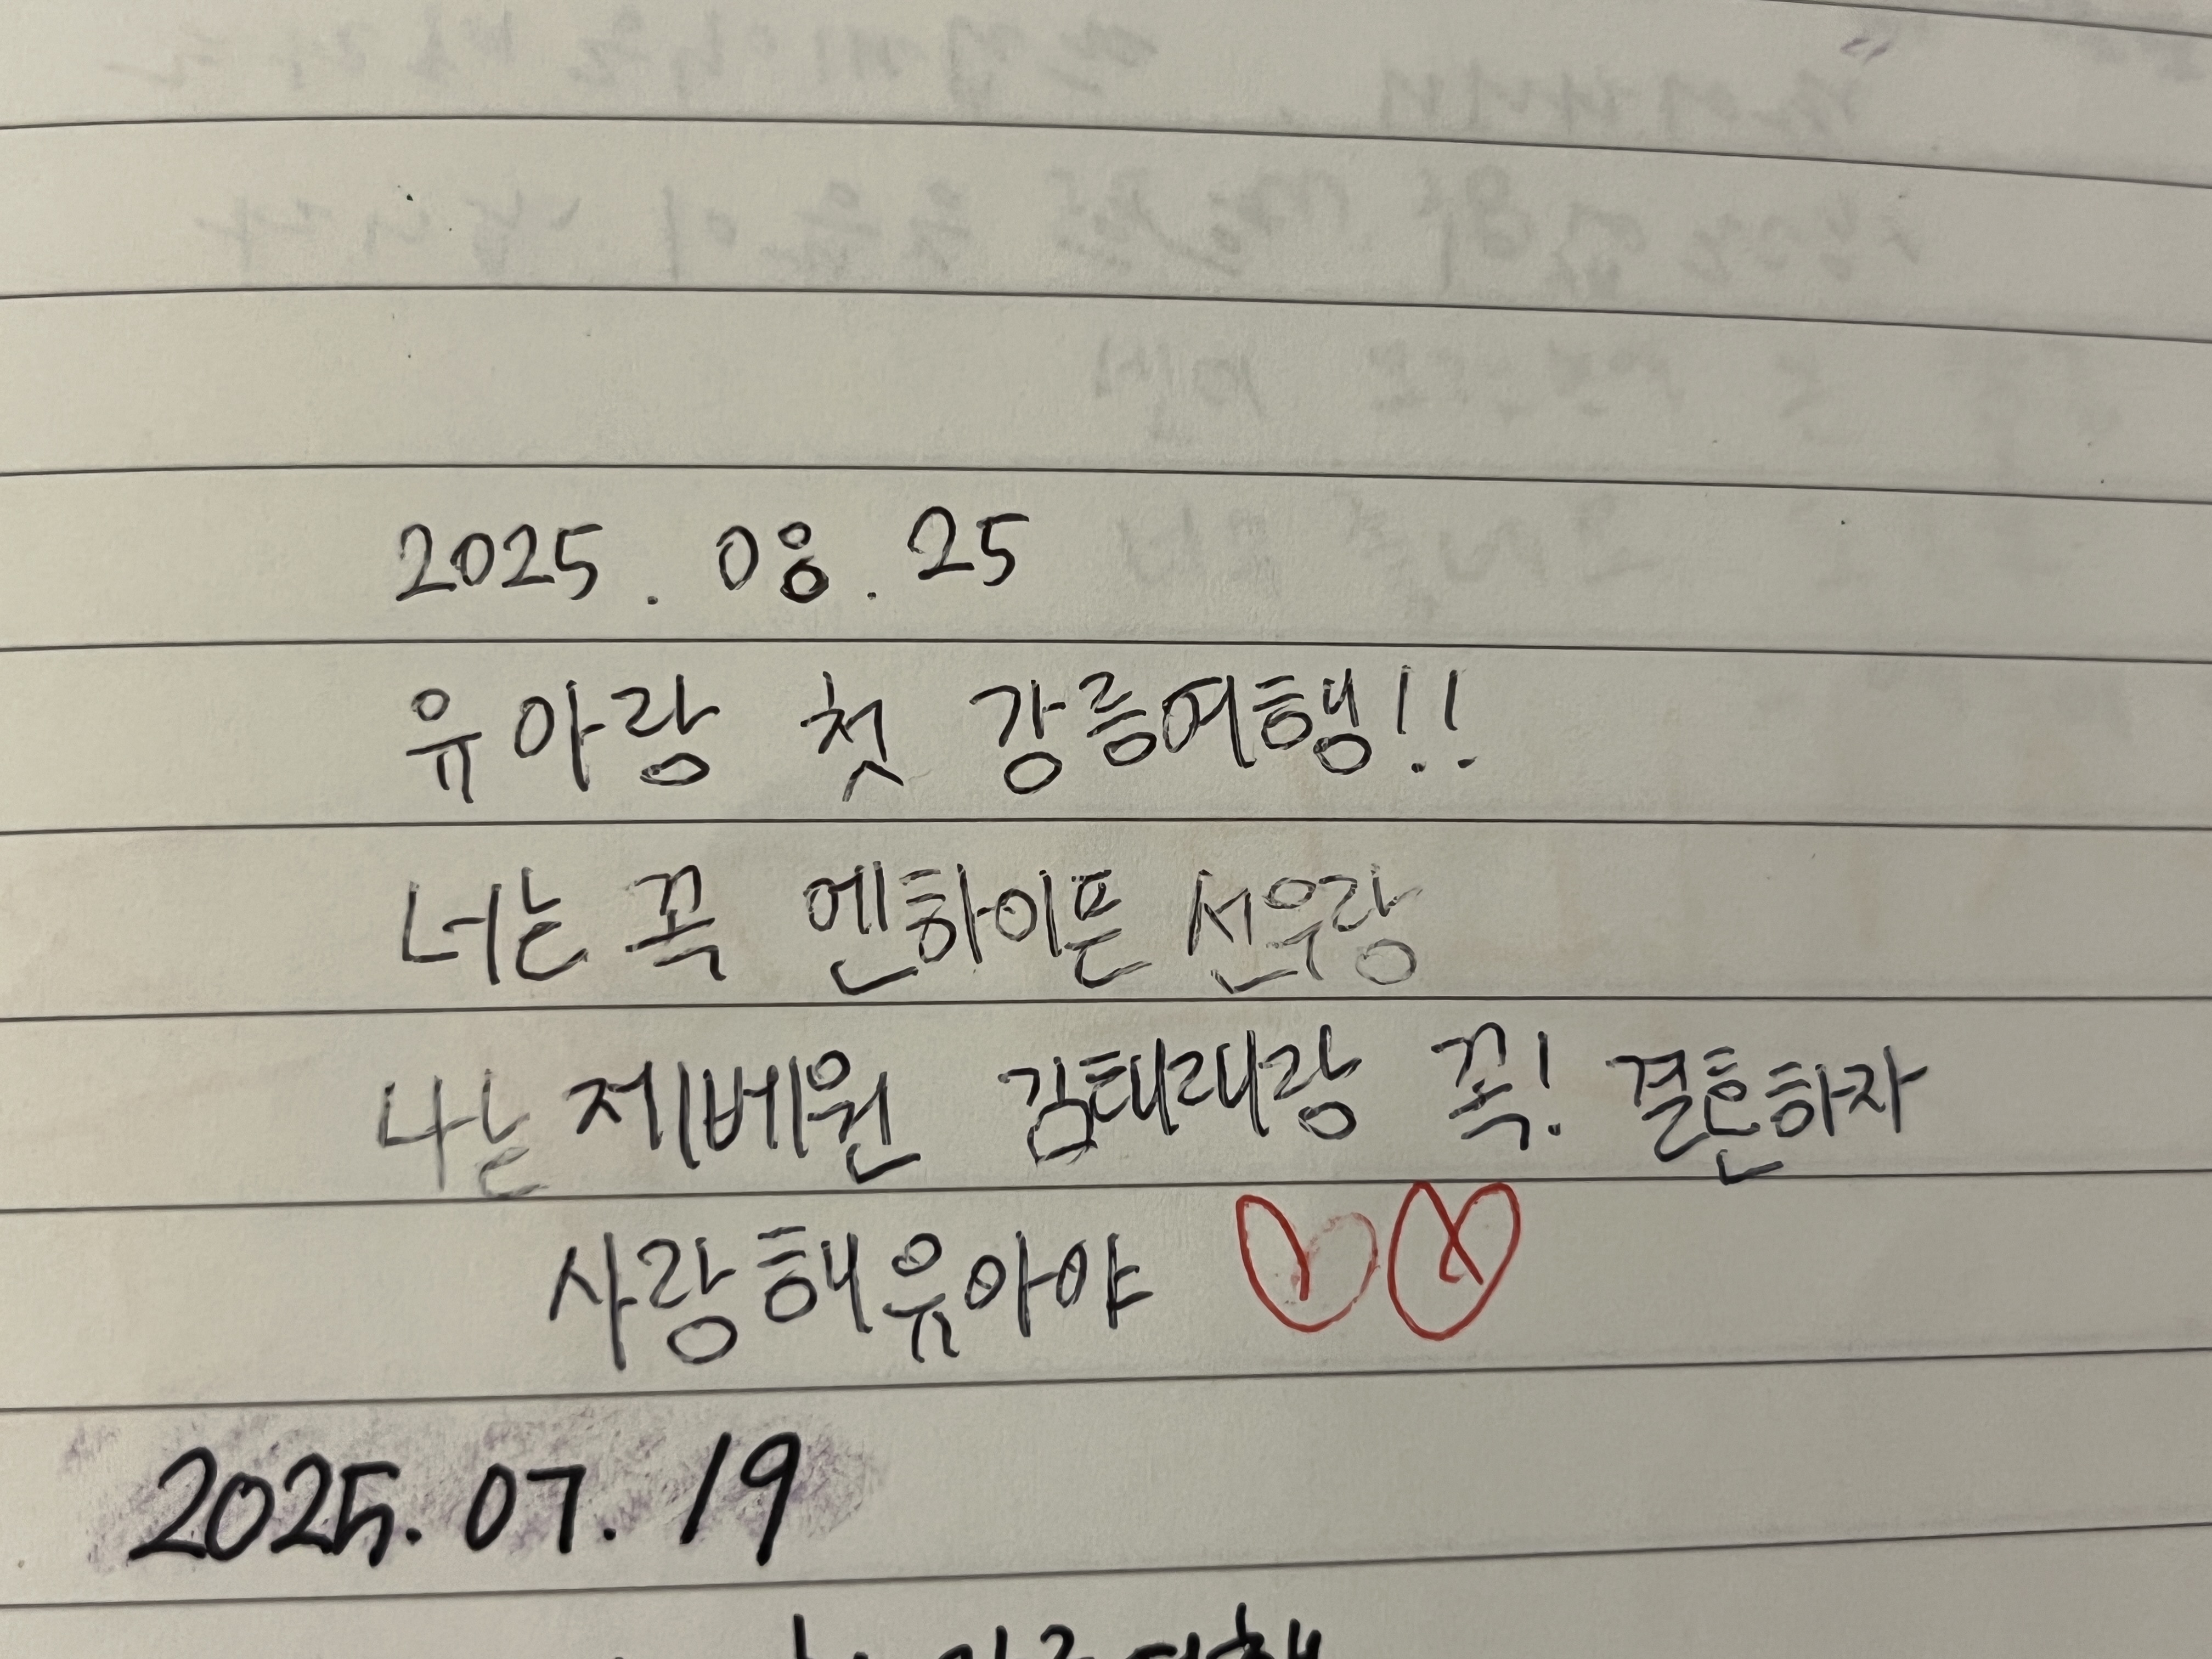 2025. 08. 25
유아랑 첫 강릉여행!!
너는 꼭 엔하이픈 선우랑
나는 제베원 김태래랑 꼭! 결혼하자
사랑해유아야 ♡♡
2025.07.19